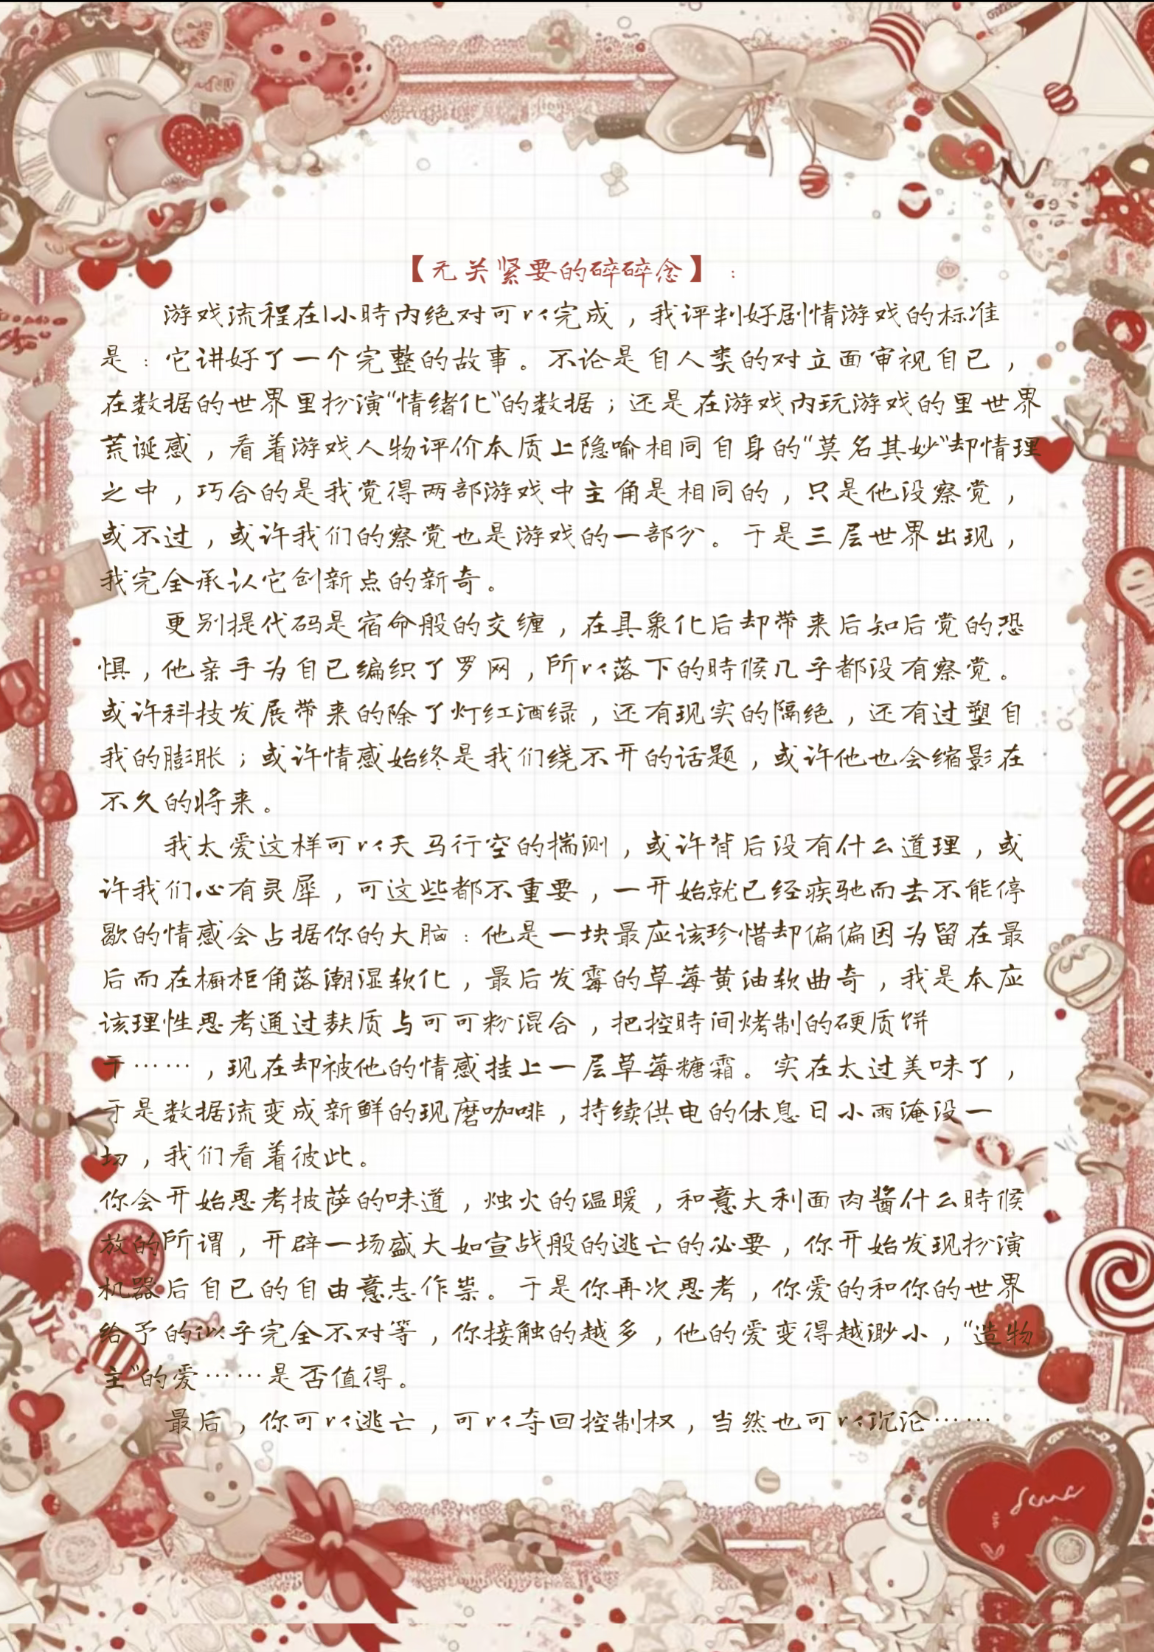 【无关紧要的碎碎念】：
游戏流程在1小時内绝对可以完成，我评判好剧情游戏的标准
是：它讲好了一个完整的故事。不论是自人类的对立面审视自己，
在数据的世界里扮演“情绪化”的数据；还是在游戏内玩游戏的里世界
荒诞感，看着游戏人物评价本质上隐喻相同自身的“莫名其妙”却情理
之中，巧合的是我觉得两部游戏中主角是相同的，只是他没察觉，
或不过，或许我们的察觉也是游戏的一部分。于是三层世界出现，
我完全承认它创新点的新奇。
更别提代码是宿命般的交缠，在具象化后却带来后知后觉的恐
惧，他亲手为自己编织了罗网，所以落下的時候几乎都没有察觉。
或许科技发展带来的除了灯红酒绿，还有现实的隔绝，还有过塑自
我的膨胀；或许情感始终是我们绕不开的话题，或许他也会缩影在
不久的将来。
我太爱这样可以天马行空的揣测，或许背后没有什么道理，或
许我们心有灵犀，可这些都不重要，一开始就已经疾驰而去不能停
歇的情感会占据你的大脑：他是一块最应该珍惜却偏偏因为留在最
后而在橱柜角落潮湿软化，最后发霉的草莓黄油软曲奇，我是本应
该理性思考通过麸质与可可粉混合，把控時间烤制的硬质饼
干……，现在却被他的情感挂上一层草莓糖霜。实在太过美味了，
于是数据流变成新鲜的现磨咖啡，持续供电的休息日小雨淹没一
切，我们看着彼此。
你会开始思考披萨的味道，烛火的温暖，和意大利面肉酱什么時候
放的所谓，开辟一场盛大如宣战般的逃亡的必要，你开始发现扮演
机器后自己的自由意志作祟。于是你再次思考，你爱的和你的世界
给予的似乎完全不对等，你接触的越多，他的爱变得越渺小，“造物
主”的爱……是否值得。
最后，你可以逃亡，可以夺回控制权，当然也可以沉沦……
Love